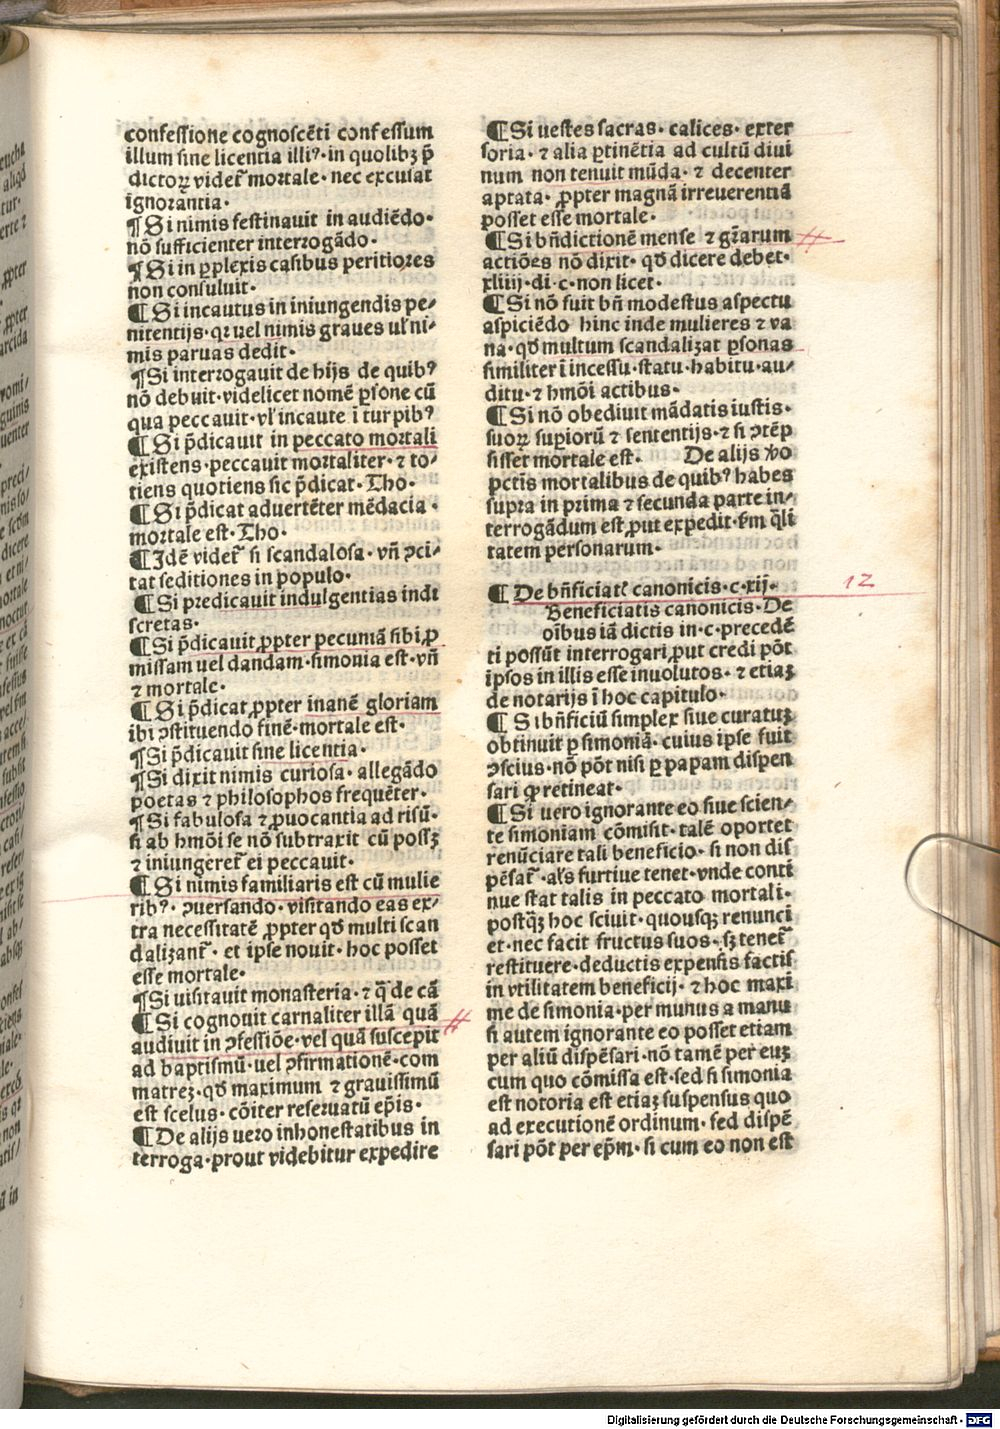 confessione cognoscēti confessum
illum sine licentia illiꝰ· in quolibꝫ p̄
dictoꝝ videt᷑ mortale· nec excusat
ignorantia·
¶Si nimis festinauit in audiēdo·
nō sufficienter interrogādo·
¶Si in ꝑplexis casibus peritiores
non consuluit·
¶Si incautus in iniungendis pe⸗
nitentijs· qꝛ uel nimis graues uł ni⸗
mis paruas dedit·
¶Si interrogauit de hijs de quibꝰ
nō debuit· videlicet nomē ꝑsone cū
qua peccauit· vł incaute ī turpibꝰ
¶Si p̄dicauit in peccato mortali
existens· peccauit mortaliter· ⁊ to⸗
tiens quotiens sic p̄dicat· Tho·
¶Si p̄dicat aduertēter mēdacia·
mortale est· Tho·
¶Idē videt᷑ si scandalosa· vn̄ ↄci⸗
tat seditiones in populo·
¶Si predicauit indulgentias indi
scretas·
¶Si p̄dicauit ꝓpter pecuniā sibi ꝓ
missam uel dandam· simonia est· vn̄
⁊ mortale·
¶Si p̄dicat ꝓpter inanē gloriam
ibi ↄstituendo finē· mortale est·
¶Si p̄dicauit sine licentia·
¶Si dixit nimis curiosa· allegādo
poetas ⁊ philosophos frequēter·
¶Si fabulosa ⁊ ꝓuocantia ad risū·
si ab hmōi se nō subtraxit cū possꝫ
⁊ iniungeret᷑ ei peccauit·
¶Si nimis familiaris est cū mulie
ribꝰ· ↄuersando· visitando eas ex⸗
tra necessitatē ꝓpter qd̄ multi scan
dalizant᷑· et ipse nouit· hoc posset
esse mortale·
¶Si uisitauit monasteria· ⁊ q̄ de cā
¶Si cognouit carnaliter illā quā
audiuit in ↄfessiōe· vel quā suscepit
ad baptismū· uel ↄfirmationē· com
matreꝫ· qd̄ maximum ⁊ grauissimū
est scelus· cōiter reseruatū ep̄is·
¶De alijs uero inhonestatibus in
terroga· prout videbitur expedire
¶Si uestes sacras· calices· exter
soria· ⁊ alia ꝑtinētia ad cultū diui
num non tenuit mūda· ⁊ decenter
aptata· ꝓpter magnā irreuerentiā
posset esse mortale·
¶Si bn̄dictionē mense ⁊ gr̄arum
actiōes nō dixit· qd̄ dicere debet·
xliiij· di· c· non licet·
¶Si nō fuit bn̄ modestus aspectu
aspiciēdo hinc inde mulieres ⁊ va
na· qd̄ multum scandalizat ꝑsonas
similiter ī incessu· statu· habitu· au⸗
ditu· ⁊ hmōi actibus·
¶Si nō obediuit mādatis iustis·
suoꝝ supiorū ⁊ sententijs· ⁊ si ↄtēp
sisset mortale est· De alijs ꝟo
pctīs mortalibus de quibꝰ habes
supra in prima ⁊ secunda parte in⸗
terrogādum est ꝓut expedit· ẜm q̄li
tatem personarum·
¶ De bn̄ficiatꝭ canonicis· c· xij· 12
Beneficiatis canonicis· De
oībus iā dictis in· c· precedē
ti possūt interrogari ꝓut credi pōt
ipsos in illis esse inuolutos· ⁊ etiaꝫ
de notarijs ī hoc capitulo·
¶Si bn̄ficiū simplex siue curatuꝫ
obtinuit ꝑ simoniā· cuius ipse fuit
ↄscius· nō pōt nisi ꝑ papam dispen
sari qꝛ retineat·
¶Si uero ignorante eo siue scien⸗
te simoniam cōmisit· talē oportet
renūciare tali beneficio· si non dis
pēsat᷑· als̄ furtiue tenet· vnde conti
nue stat talis in peccato mortali·
postq̄ꝫ hoc sciuit· quousqꝫ renunci
et· nec facit fructus suos· sꝫ tenet᷑
restituere· deductis expensis factis
in vtilitatem beneficij· ⁊ hoc maxi
me de simonia· per munus a manu
si autem ignorante eo posset etiam
per aliū dispēsari· nō tamē per euꝫ
cum quo cōmissa est· sed si simonia
est notoria est etiaꝫ suspensus quo
ad executionē ordinum· sed dispē
sari pōt per ep̄m· si cum eo non est
Digitalisierung gefördert durch die Deutsche Forschungsgemeinschaft - DFG